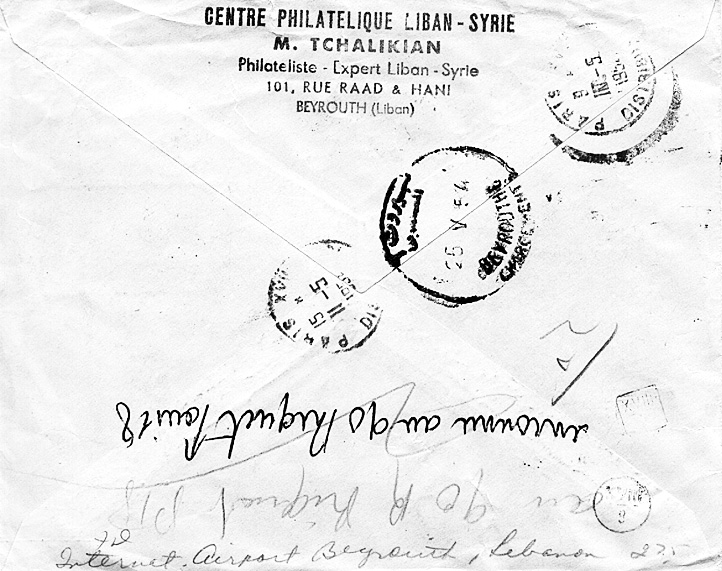 CENTRE PHILATELIQUE LIBAN - SYRIE
M. TCHALIKIAN
Philateliste - Expert Liban - Syrie
101, RUE RAAD & HANI
BEYROUTH (Liban)
PARIS
5 - VI
DISTRIB
بيروت
26 V 54
BEYROUTH
CHARGEMENTS
PARIS XVIII
15
5 -
inconnu au 90 Riquet Paris 18
au 90 R Riquet P 18
Internat. Airport Beyrouth, Lebanon 275